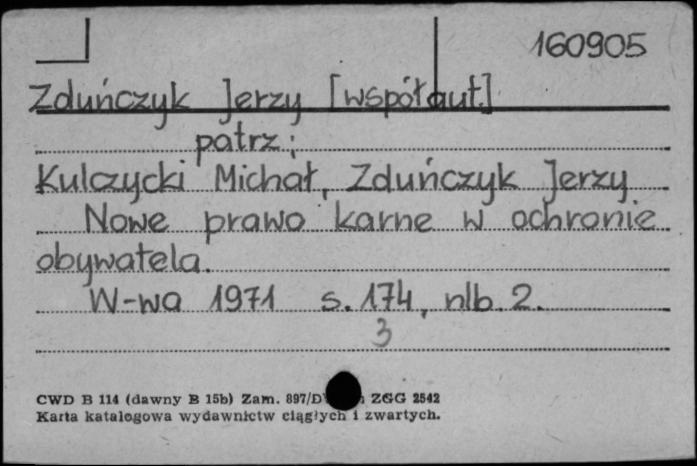 160905
Zduńczyk Jerzy [współaut.]
patrz:
Kulczycki Michał, Zduńczyk Jerzy
Nowe prawo karne w ochronie
obywatela.
W-wa 1971 s. 174, nlb. 2.
3
CWD B 114 (dawny B 15b) Zam. 897/D ZGG 2542
Karta katalogowa wydawnictw ciągłych i zwartych.